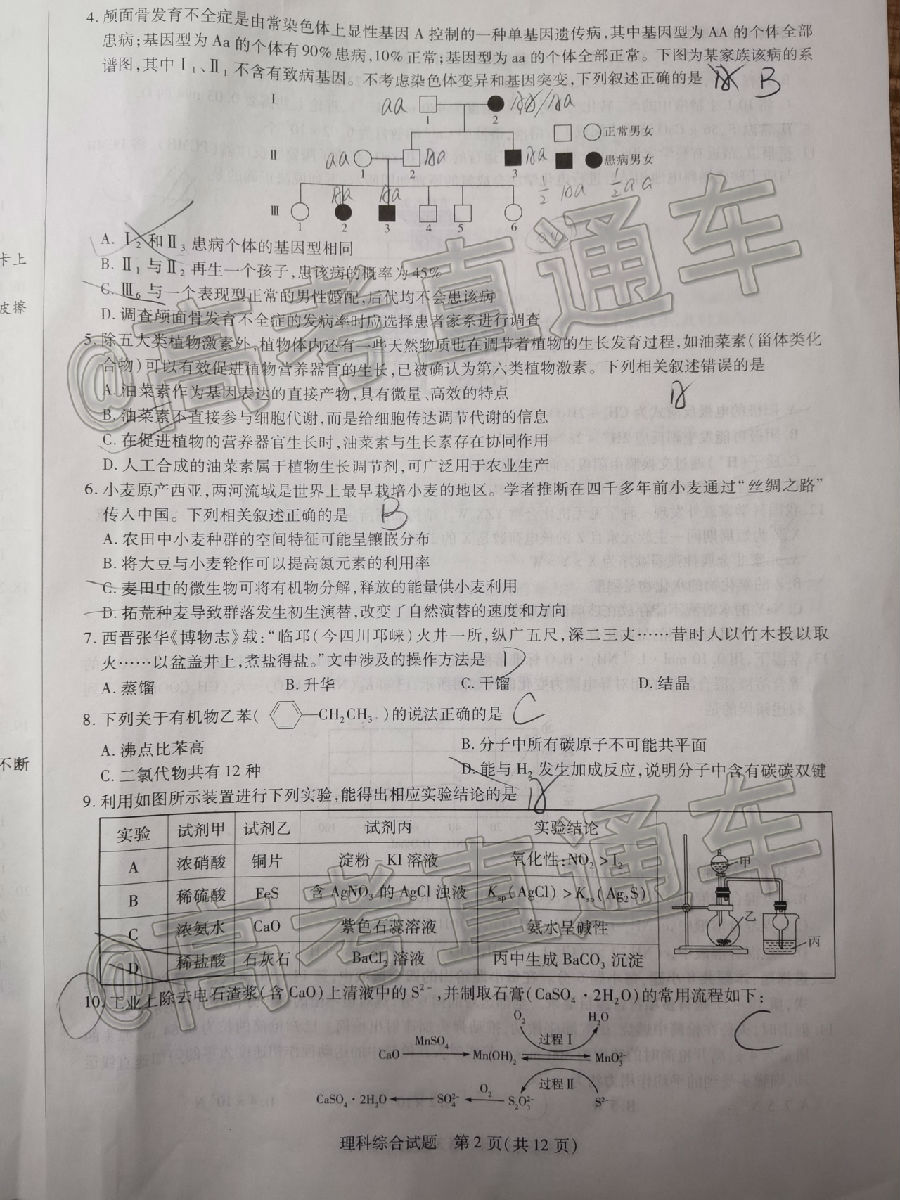 4. 颅面骨发育不全症是由常染色体上显性基因 A 控制的一种单基因遗传病,其中基因型为 AA 的个体全部
患病;基因型为 Aa 的个体有90%患病,10%正常;基因型为 aa 的个体全部正常。下图为某家族该病的系
谱图,其中Ⅰ₁、Ⅱ₁不含有致病基因。不考虑染色体变异和基因突变,下列叙述正确的是 B
Ⅰ aa 1 2
正常男女
Ⅱ aa 1 2 Aa 3 Aa
患病男女
1/2 Aa 1/2 aa
Aa Aa
Ⅲ 1 2 3 4 5 6
A. Ⅰ₂和Ⅱ₃患病个体的基因型相同
B. Ⅱ₁与Ⅱ₂再生一个孩子,患该病的概率为45%
C. Ⅲ₆与一个表现型正常的男性婚配,后代均不会患该病
D. 调查颅面骨发育不全症的发病率时应选择患者家系进行调查
5. 除五大类植物激素外,植物体内还有一些天然物质也在调节着植物的生长发育过程,如油菜素(甾体类化
合物)可以有效促进植物营养器官的生长,已被确认为第六类植物激素。下列相关叙述错误的是
A. 油菜素作为基因表达的直接产物,具有微量、高效的特点
B. 油菜素不直接参与细胞代谢,而是给细胞传达调节代谢的信息
C. 在促进植物的营养器官生长时,油菜素与生长素存在协同作用
D. 人工合成的油菜素属于植物生长调节剂,可广泛用于农业生产
6. 小麦原产西亚,两河流域是世界上最早栽培小麦的地区。学者推断在四千多年前小麦通过“丝绸之路”
传入中国。下列相关叙述正确的是 B
A. 农田中小麦种群的空间特征可能呈镶嵌分布
B. 将大豆与小麦轮作可以提高氮元素的利用率
C. 麦田中的微生物可将有机物分解,释放的能量供小麦利用
D. 拓荒种麦导致群落发生初生演替,改变了自然演替的速度和方向
7. 西晋张华《博物志》载:“临邛(今四川邛崃)火井一所,纵广五尺,深二三丈……昔时人以竹木投以取
火……以盆盖井上,煮盐得盐。”文中涉及的操作方法是 D
A. 蒸馏 B. 升华 C. 干馏 D. 结晶
8. 下列关于有机物乙苯( —CH₂CH₃ )的说法正确的是 C
A. 沸点比苯高 B. 分子中所有碳原子不可能共平面
C. 二氯代物共有 12 种 D. 能与 H₂ 发生加成反应,说明分子中含有碳碳双键
9. 利用如图所示装置进行下列实验,能得出相应实验结论的是
实验 试剂甲 试剂乙 试剂丙 实验结论
A 浓硝酸 铜片 淀粉-KI 溶液 氧化性:NO₂>I₂
B 稀硫酸 FeS 含 AgNO₃ 的 AgCl 浊液 Ksp(AgCl)>Ksp(Ag₂S)
C 浓氨水 CaO 紫色石蕊溶液 氨水呈碱性
D 稀盐酸 石灰石 BaCl₂ 溶液 丙中生成 BaCO₃ 沉淀
甲
乙
丙
10. 工业上除去电石渣浆(含 CaO)上清液中的 S²⁻,并制取石膏(CaSO₄·2H₂O)的常用流程如下:
C
O₂ H₂O
CaO MnSO₄ Mn(OH)₂ 过程Ⅰ MnO₃²⁻
过程Ⅱ
CaSO₄·2H₂O SO₄²⁻ O₂ S₂O₃²⁻ S²⁻
理科综合试题 第 2 页(共 12 页)
卡上
皮擦
不断
@高考直通车
@高考直通车